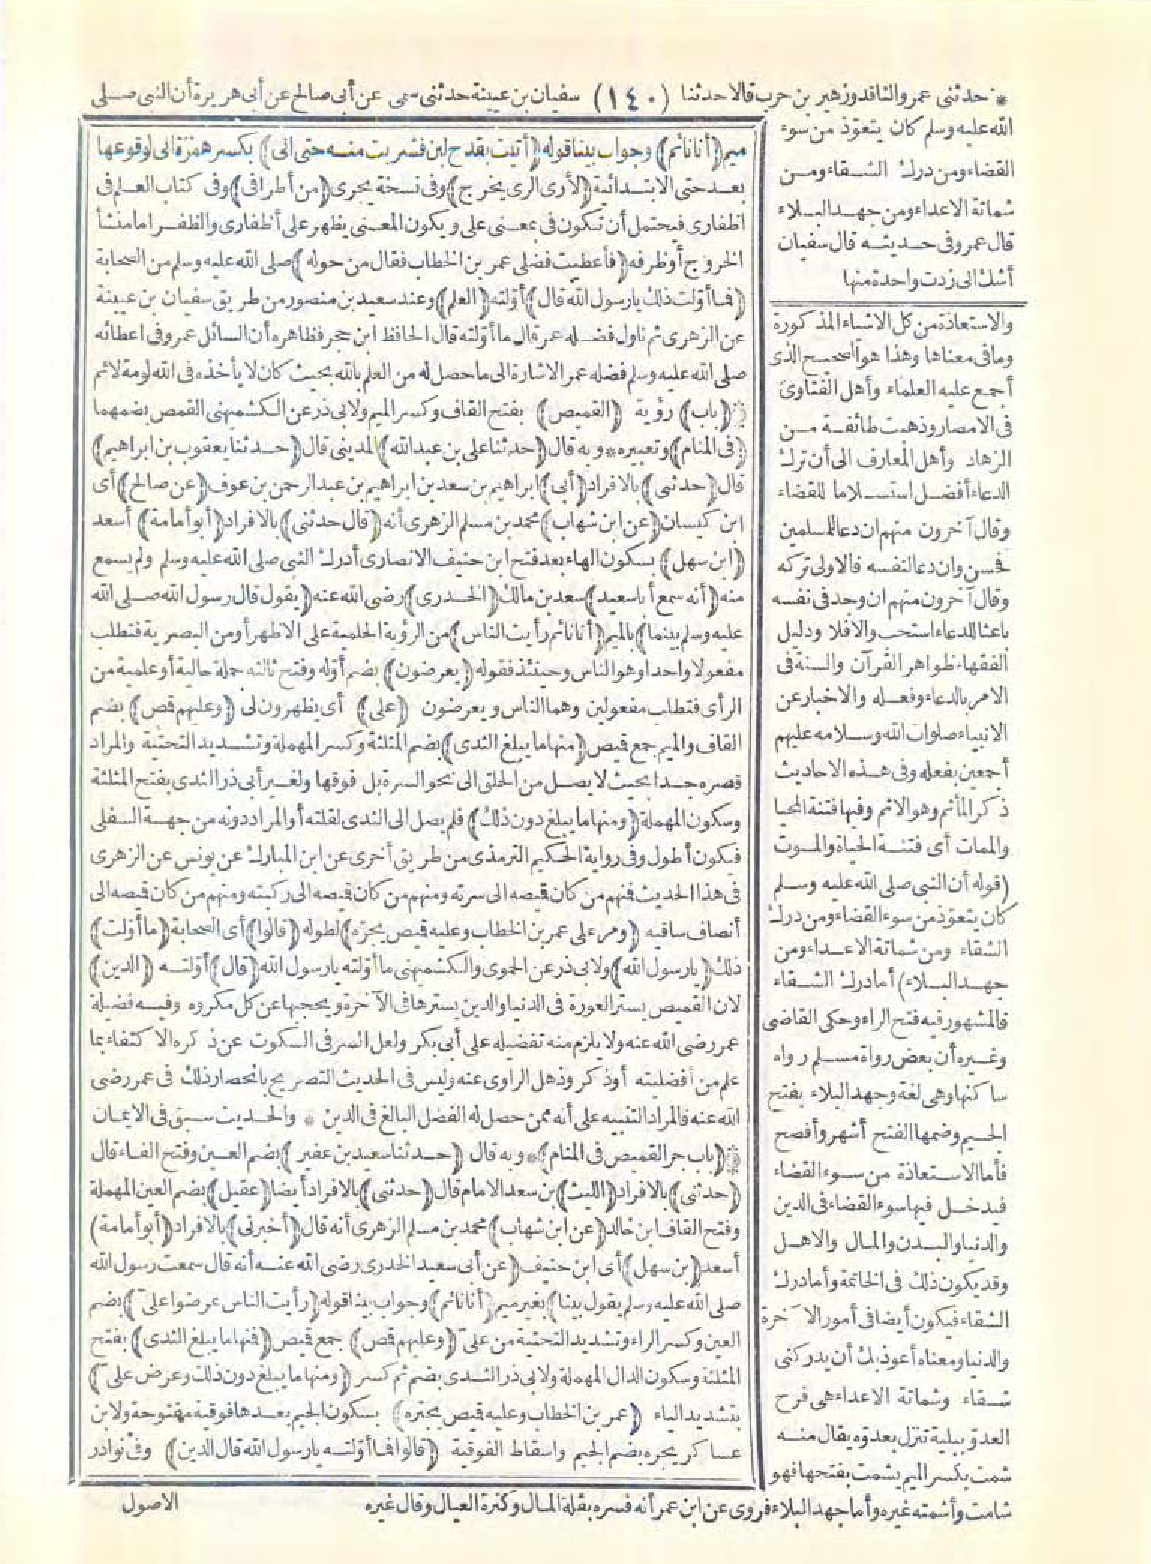 * حدثنى عمرو الناقد وزهير بن حرب قالا حدثنا (١٤٠) سفيان بن عيينة حدثنى سمى عن أبى صالح عن أبى هريرة أن النبى صلى
الله عليه وسلم كان يتعوّذ من سوء
القضاء ومن درك الشقاء ومن
شماتة الاعداء ومن جهد البلاء
قال عمرو فى حديثه قال سفيان
أشك انى زدت واحدة منها
والاستعاذة من كل الاشياء المذكورة
وما فى معناها وهذا هو الصحيح الذى
أجمع عليه العلماء وأهل الفتاوى
فى الامصار وذهبت طائفة من
الزهاد وأهل المعارف الى أن ترك
الدعاء أفضل استسلاما للقضاء
وقال آخرون منهم ان دعا للمسلمين
فحسن وان دعا لنفسه فالاولى تركه
وقال آخرون منهم ان وجد فى نفسه
باعثا للدعاء استحب والا فلا ودليل
الفقهاء ظواهر القرآن والسنة فى
الامر بالدعاء وفعله والاخبار عن
الانبياء صلوات الله وسلامه عليهم
أجمعين بفعله وفى هذه الاحاديث
ذكر المأثم وهو الاثم وفيها فتنة المحيا
والممات أى فتنة الحياة والموت
(قوله أن النبى صلى الله عليه وسلم
كان يتعوّذ من سوء القضاء ومن درك
الشقاء ومن شماتة الاعداء ومن
جهد البلاء) أما درك الشقاء
فالمشهور فيه فتح الراء وحكى القاضى
وغيره أن بعض رواة مسلم رواه
ساكنها وهى لغة وجهد البلاء بفتح
الجيم وضمها الفتح أشهر وأفصح
فأما الاستعاذة من سوء القضاء
فيدخل فيها سوء القضاء فى الدين
والدنيا والبدن والمال والاهل
وقد يكون ذلك فى الخاتمة وأما درك
الشقاء فيكون أيضا فى أمور الآخرة
والدنيا ومعناه أعوذ بك أن يدركنى
شقاء وشماتة الاعداء هى فرح
العدوّ ببلية تنزل بعدوّه يقال منه
شمت بكسر الميم يشمت بفتحها فهو
شامت وأشمته غيره وأما جهد البلاء فروى عن ابن عمر أنه فسره بقلة المال وكثرة العيال وقال غيره
ميم (أنا نائم) وجواب بينا قوله (أتيت بقدح لبن فشربت منه حتى انى) بكسر همزة انى لوقوعها
بعد حتى الابتدائية (لأرى الرى يخرج) وفى نسخة يجرى (من أطرافى) وفى كتاب العلم فى
اظفارى فيحتمل أن تكون فى بمعنى على ويكون المعنى يظهر على أظفارى والظفر اما منشأ
الخروج أو ظرفه (فأعطيت فضلى عمر بن الخطاب فقال من حوله) صلى الله عليه وسلم من الصحابة
(فما أوّلت ذلك يا رسول الله قال) أوّلته (العلم) وعند سعيد بن منصور من طريق سفيان بن عيينة
عن الزهرى ثم ناول فضله عمر قال ما أوّلته قال الحافظ ابن حجر فظاهره أن السائل عمر وفى اعطائه
صلى الله عليه وسلم فضله عمر الاشارة الى ما حصل له من العلم بالله بحيث كان لا يأخذه فى الله لومة لائم
(باب) رؤية (القميص) بفتح القاف وكسر الميم ولابى ذر عن الكشميهنى القمص بضمهما
(فى المنام) وتعبيره * وبه قال (حدثنا على بن عبد الله) المدينى قال (حدثنا يعقوب بن ابراهيم)
قال (حدثنى) بالافراد (أبى) ابراهيم بن سعد بن ابراهيم بن عبد الرحمن بن عوف (عن صالح) أى
ابن كيسان (عن ابن شهاب) محمد بن مسلم الزهرى أنه (قال حدثنى) بالافراد (أبو أمامة) أسعد
(ابن سهل) بسكون الهاء بعد فتح ابن حنيف الانصارى أدرك النبى صلى الله عليه وسلم ولم يسمع
منه (أنه سمع أبا سعيد) سعد بن مالك (الخدرى) رضى الله عنه (يقول قال رسول الله صلى الله
عليه وسلم بينما) بالميم (أنا نائم رأيت الناس) من الرؤية الحلمية على الاظهر أو من البصرية فتطلب
مفعولا واحدا وهو الناس وحينئذ فقوله (يعرضون) بضم أوّله وفتح ثالثه جملة حالية أو علمية من
الرأى فتطلب مفعولين وهما الناس ويعرضون (على) أى يظهرون لى (وعليهم قمص) بضم
القاف والميم جمع قميص (منها ما يبلغ الثدى) بضم المثلثة وكسر المهملة وتشديد التحتية والمراد
قصره جدا بحيث لا يصل من الحلق الى نحو السرة بل فوقها ولغير أبى ذر الثدى بفتح المثلثة
وسكون المهملة (ومنها ما يبلغ دون ذلك) فلم يصل الى الثدى لقلته أو المراد دونه من جهة السفلى
فيكون أطول وفى رواية الحكيم الترمذى من طريق أخرى عن ابن المبارك عن يونس عن الزهرى
فى هذا الحديث فمنهم من كان قميصه الى سرته ومنهم من كان قميصه الى ركبته ومنهم من كان قميصه الى
أنصاف ساقيه (ومر على عمر بن الخطاب وعليه قميص يجرّه) لطوله (قالوا) أى الصحابة (ما أوّلت)
ذلك (يا رسول الله) ولابى ذر عن الحموى والكشميهنى ما أوّلته يا رسول الله (قال) أوّلته (الدين)
لان القميص يستر العورة فى الدنيا والدين يسترها فى الآخرة ويحجبها عن كل مكروه وفيه فضيلة
عمر رضى الله عنه ولا يلزم منه تفضيله على أبى بكر ولعل السر فى السكوت عن ذكره الاكتفاء بما
علم من أفضليته أو ذكر وذهل الراوى عنه وليس فى الحديث التصريح بانحصار ذلك فى عمر رضى
الله عنه فالمراد التنبيه على أنه ممن حصل له الفضل البالغ فى الدين * والحديث سبق فى الايمان
(باب جر القميص فى المنام) * وبه قال (حدثنا سعيد بن عفير) بضم العين وفتح الفاء قال
(حدثنى) بالافراد (الليث) بن سعد الامام قال (حدثنى) بالافراد أيضا (عقيل) بضم العين المهملة
وفتح القاف ابن خالد (عن ابن شهاب) محمد بن مسلم الزهرى أنه قال (أخبرنى) بالافراد (أبو أمامة)
أسعد (بن سهل) أى ابن حنيف (عن أبى سعيد الخدرى رضى الله عنه أنه قال سمعت رسول الله
صلى الله عليه وسلم يقول بينا) بغير ميم (أنا نائم) وجواب بينا قوله (رأيت الناس عرضوا علىّ) بضم
العين وكسر الراء وتشديد التحتية من علىّ (وعليهم قمص) جمع قميص (فمنها ما يبلغ الثدى) بفتح
المثلثة وسكون الدال المهملة ولابى ذر الثدى بضم ثم كسر (ومنها ما يبلغ دون ذلك وعرض علىّ)
بتشديد الياء (عمر بن الخطاب وعليه قميص يجتره) بسكون الجيم بعدها فوقية مفتوحة ولابن
عساكر يجره بضم الجيم واسقاط الفوقية (قالوا فما أوّلته يا رسول الله قال الدين) وفى نوادر
الاصول